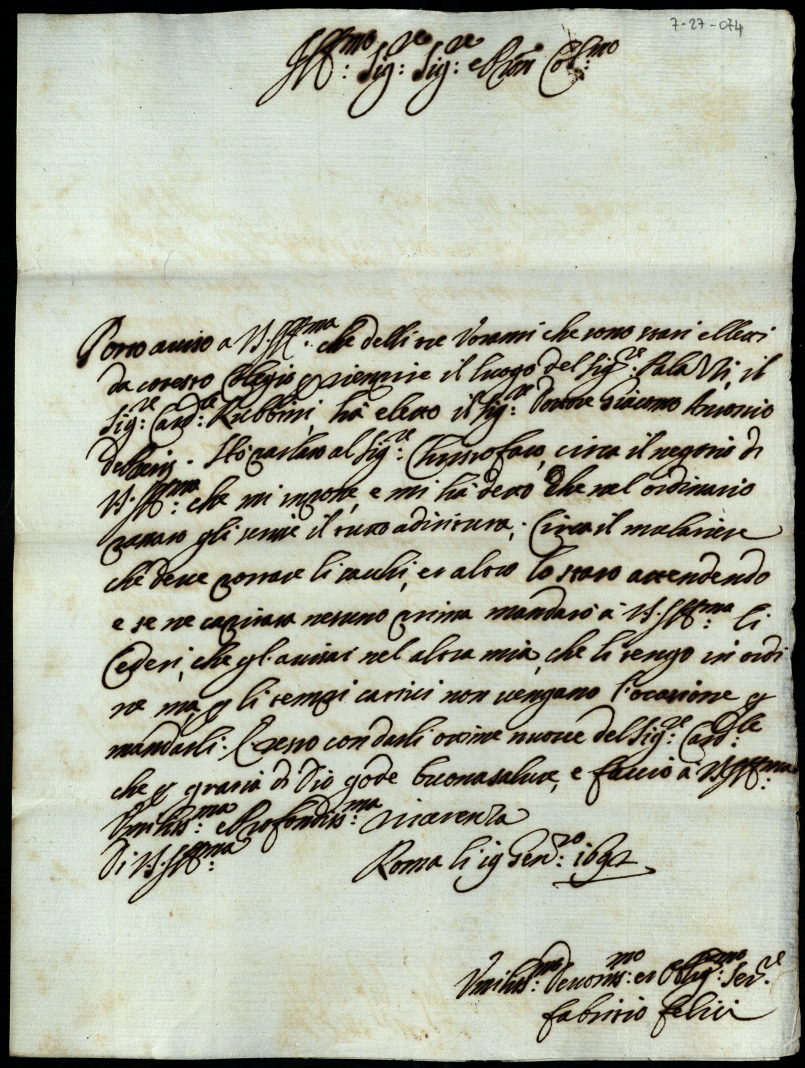 7-27-074
Ill:mo Sig:re Sig:re e Pron Col:mo
Porto auuiso a V.S. Ill:ma che delli tre Votanti che sono stati elletti
da cotesto Collegio p riempire il luogo del Sig:re il
Sig:re Card:le Rubbini, hà eletto il Sig:r Dottore Giacomo Antonio
Hò parlato al Sig:re Christofaro, circa il negotio di
V.S. Ill:ma che mi impone, e mi hà detto che nel ordinario
passato gli scrisse il tutto adirittura; Circa il mulattiere
che deue portare li sacchi, et altro lo starò attendendo
e se ne capitarà nessuno prima mandarò à V.S. Ill:ma li
Cedri, che gl'auisai nel altra mia, che li tengo in ordi
ne ma p li tempi cattiui non vengano l'ocasione p
mandarli. Resto con darli ottime nuoue del Sig:re Card:le
che p gratia di Dio gode buona salute, e faccio à V.S. Ill:ma
Vmiliss:ma e Profondiss:ma riuerenza
Di V.S. Ill:ma Roma li 19 Gen:ro 1692
Vmiliss:mo Deuotis:mo et Oblig:mo Ser:re
Fabritio Felici